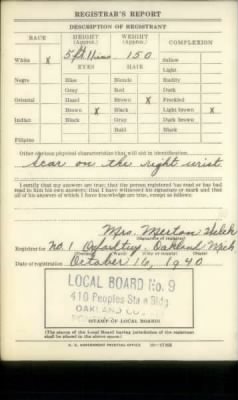 REGISTRAR'S REPORT
DESCRIPTION OF REGISTRANT
RACE HEIGHT (Approx.) WEIGHT (Approx.) COMPLEXION
White X 5 ft 150 Sallow
EYES HAIR Light
Negro Blue Blonde Ruddy
Gray Red Dark
Oriental Hazel Brown X Freckled
Brown X Black Light brown X
Indian Black Gray Dark brown
Bald Black
Filipino
Other obvious physical characteristics that will aid in identification
Scar on the right wrist
I certify that my answers are true; that the person registered has read or has had
read to him his own answers; that I have witnessed his signature or mark and that
all of his answers of which I have knowledge are true, except as follows:
Mrs. Merton
(Signature of registrar)
Registrar for No. 1 Oakland Mich
Date of registration October 16, 1940
LOCAL BOARD No. 9
410 Peoples State Bldg.
OAKLAND
(STAMP OF LOCAL BOARD)
(The stamp of the Local Board having jurisdiction of the registrant
shall be placed in the above space.)
U. S. GOVERNMENT PRINTING OFFICE